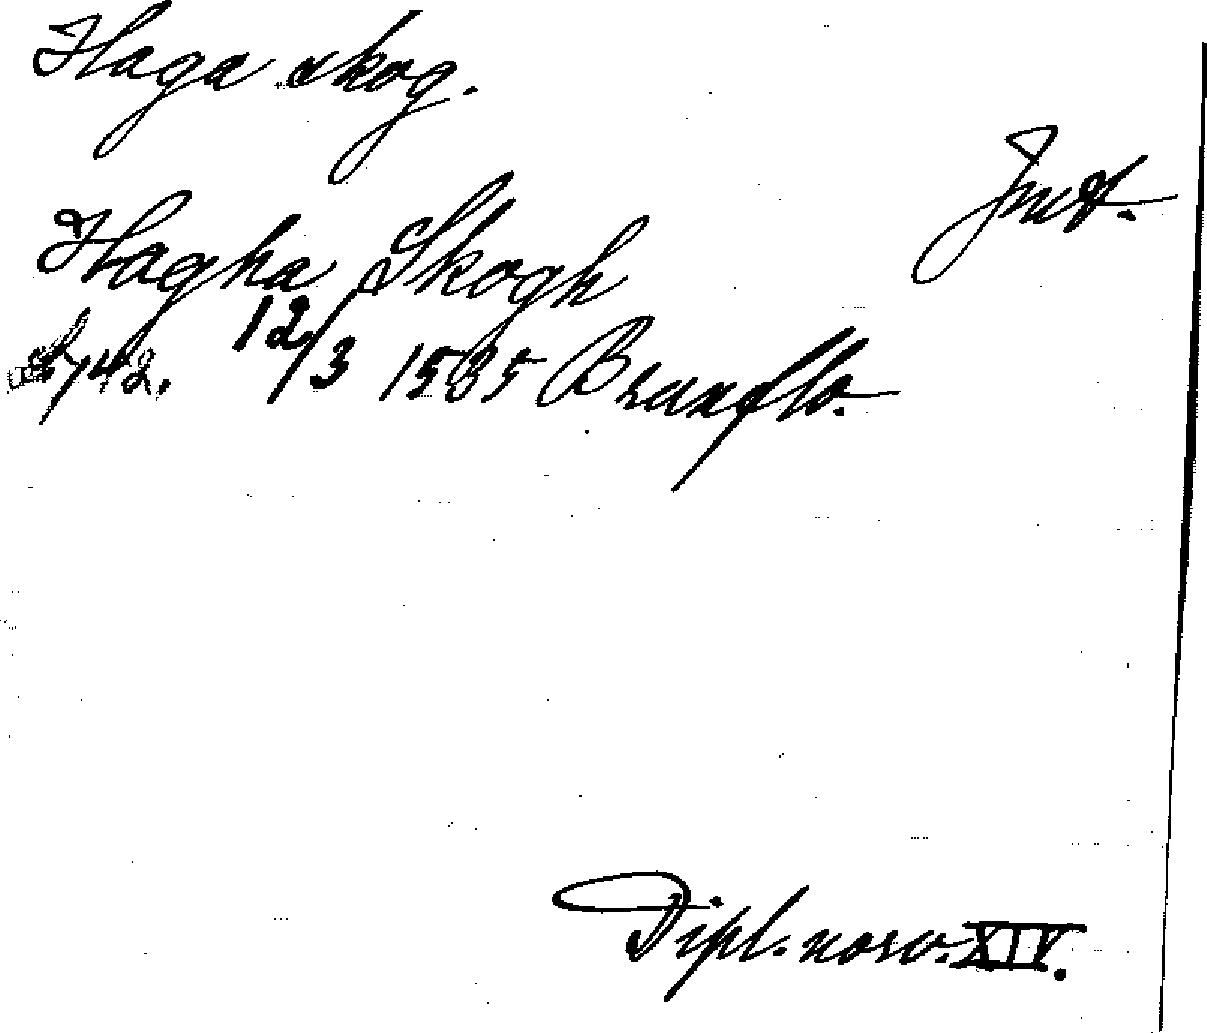 Haga skog.
Jmt.
Hagha Skogh
s. 742. 12/3 1535 Brunflo.
Dipl. norv. XIV.